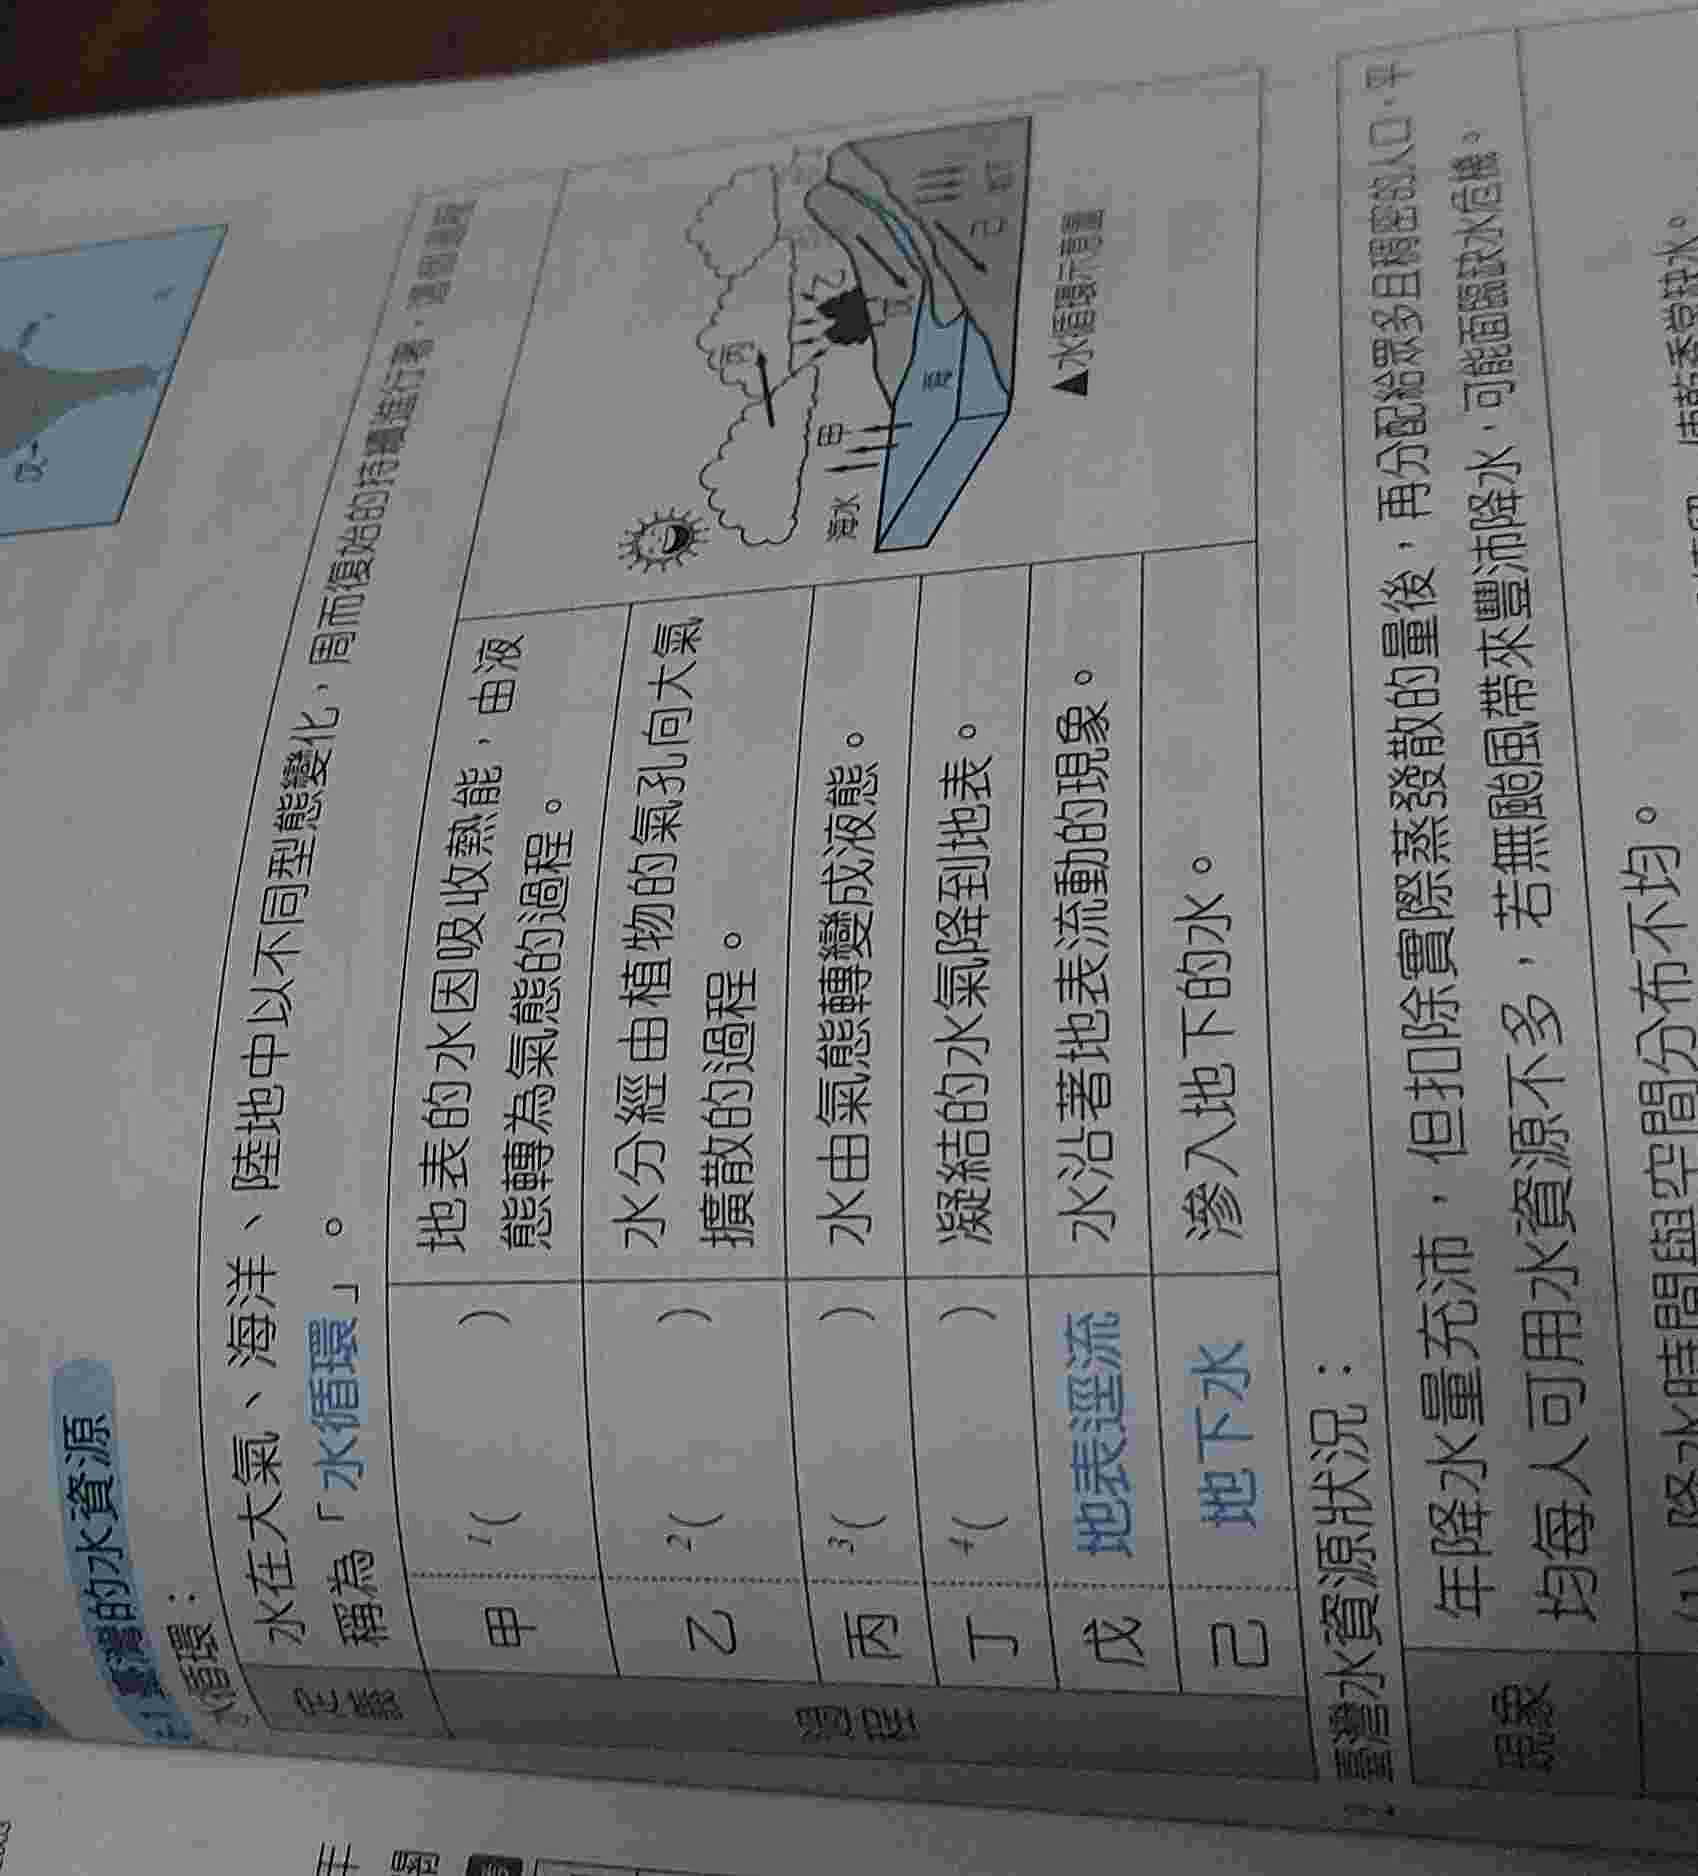 臺灣的水資源
水循環：
定義
水在大氣、海洋、陸地中以不同型態變化，周而復始的持續進行著，這個過程
稱為「水循環」。
過程
甲
1(　　)
地表的水因吸收熱能，由液
態轉為氣態的過程。
乙
2(　　)
水分經由植物的氣孔向大氣
擴散的過程。
丙
3(　　)
水由氣態轉變成液態。
丁
4(　　)
凝結的水氣降到地表。
戊
地表逕流
水沿著地表流動的現象。
己
地下水
滲入地下的水。
海水
甲
乙
丙
戊
己
▲水循環示意圖
2
臺灣水資源狀況：
現象
年降水量充沛，但扣除實際蒸發散的量後，再分配給眾多且稠密的人口，平
均每人可用水資源不多，若無颱風帶來豐沛降水，可能面臨缺水危機。
(1) 降水時間與空間分布不均。